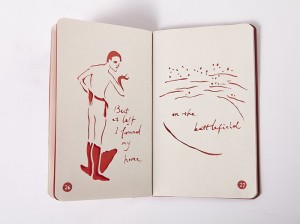 But
as left
I found
my
horse
26
on the
battlefield
27